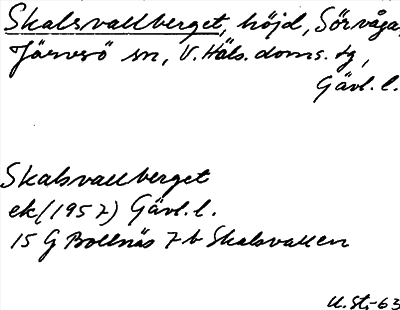 Skalsvallberget, höjd, Sörvåga,
Järvsö sn, V. Häls. doms. dg,
Gävl. l.
Skalsvallberget
ek (1957) Gävl. l.
15 G Bollnäs 7 b Skalsvallen
U. St-63